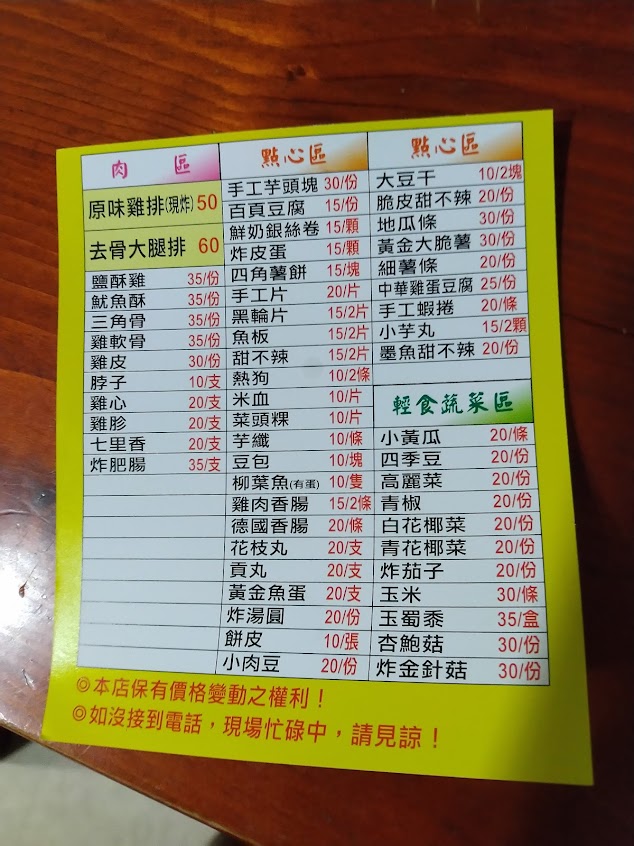 肉 區
原味雞排(現炸) 50
去骨大腿排 60
鹽酥雞 35/份
魷魚酥 35/份
三角骨 35/份
雞軟骨 35/份
雞皮 30/份
脖子 10/支
雞心 20/支
雞胗 20/支
七里香 20/支
炸肥腸 35/支
點心區
手工芋頭塊 30/份
百頁豆腐 15/份
鮮奶銀絲卷 15/顆
炸皮蛋 15/顆
四角薯餅 15/塊
手工片 20/片
黑輪片 15/2片
魚板 15/2片
甜不辣 15/2片
熱狗 10/2條
米血 10/片
菜頭粿 10/片
芋籤 10/條
豆包 10/塊
柳葉魚(有蛋) 10/隻
雞肉香腸 15/2條
德國香腸 20/條
花枝丸 20/支
貢丸 20/支
黃金魚蛋 20/支
炸湯圓 20/份
餅皮 10/張
小肉豆 20/份
點心區
大豆干 10/2塊
脆皮甜不辣 20/份
地瓜條 30/份
黃金大脆薯 30/份
細薯條 20/份
中華雞蛋豆腐 25/份
手工蝦捲 20/條
小芋丸 15/2顆
墨魚甜不辣 20/份
輕食蔬菜區
小黃瓜 20/條
四季豆 20/份
高麗菜 20/份
青椒 20/份
白花椰菜 20/份
青花椰菜 20/份
炸茄子 20/份
玉米 30/條
玉蜀黍 35/盒
杏鮑菇 30/份
炸金針菇 30/份
◎本店保有價格變動之權利！
◎如沒接到電話，現場忙碌中，請見諒！